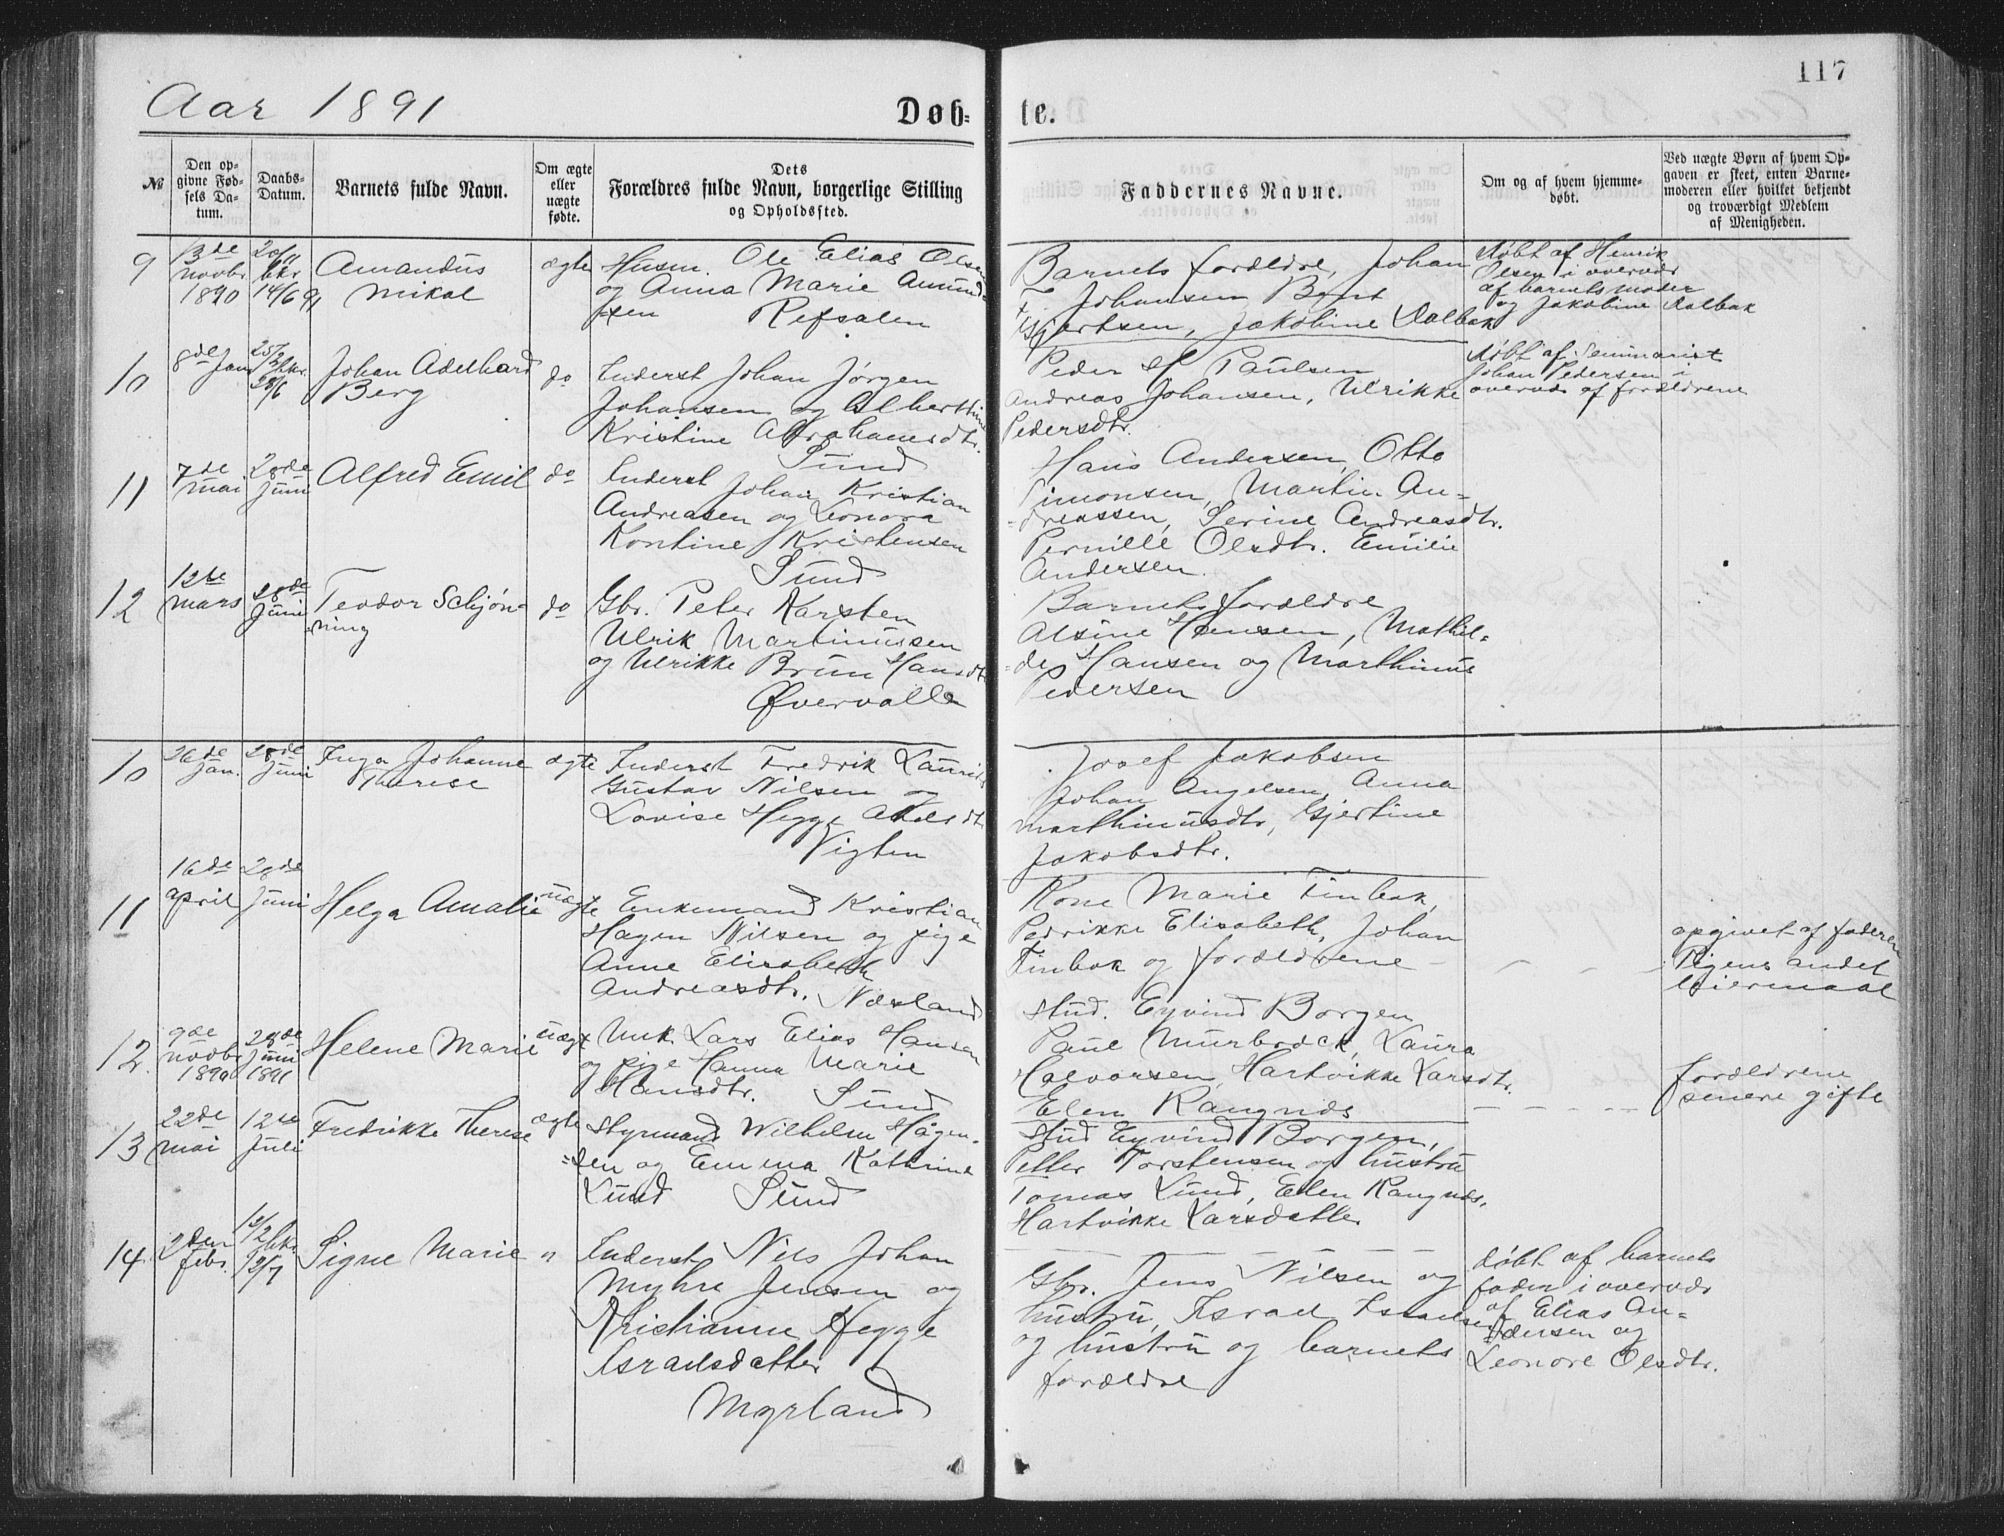 Aar 1891
Døb=
te.
117
№
Den op=
givne Fød=
sels Da=
tum.
Daabs=
Datum.
Barnets fulde Navn.
Om ægte
eller
uægte
fødte.
Dets
Forældres fulde Navn, borgerlige Stilling
og Opholdssted.
Faddernes Navne.
Om og af hvem hjemme=
døbt.
Ved uægte Børn af hvem Op=
gaven er skeet, enten Barne=
moderen eller hvilket bekjendt
og troværdigt Medlem
af Menigheden.
9
13de
novbr
1890
20/11
hkr
14/6 91
Amandus
Mikal
ægte
Husm. Ole Elias Olsen
og Anna Marie Amund=
sen Refsalen
Barnets forældre, Johan
Johansen Bent
Gjertsen, Jakobine Aalbak
døbt af Henrik
Olsen i overvær
af barnets moder
og Jakobine Aalbak
10
8de Jan
28/6
Johan Adelhard
Berg
do
Inderst Johan Jørgen
Johansen og Alberthine
Kristine Abrahamsdtr.
Sund
Peder M Paulsen
Andreas Johansen, Ulrikke
Pedersdtr.
døbt af Seminarist
Johan Pedersen i
overvær af forældrene
11
7de
mai
28de
Juni
Alfred Emil
do
Inderst Johan Kristian
Andreasen og Leonora
Kontine Kristensen
Sund
Hans Andersen, Otto
Simonsen, Martin An=
=dreassen, Serine Andreasdtr.
Pernille Olsdtr. Emilie
Andersen.
12
12te
mars
28de
Juni
Teodor Schjøn=
ning
do
Gbr. Peter Karsten
Ulrik Martinussen
og Ulrikke Brun Hansdtr
Øvervalle
Barnets forældre
Alsine Hansen, Mathil=
=de Hansen og Marthinus
Pedersen
10
26de
Jan.
28de
Juni
Inga Johanne
Therese
ægte
Inderst Fredrik Laurids
Gustav Nilsen og
Lovise Hegge
Vigten
Josef Jakobsen
Johan Angelsen, Anna
Marthinusdtr, Gjertine
Jakobsdtr.
11
16de
april
28de
Juni
Helga Amalie
uægte
Enkemand Kristian
Hagen Nilsen og pige
Anne Elisabeth
Andreasdtr. Næsland
Kone Marie Finbak,
Pedrikke Elisabeth, Johan
Finbak og forældrene
opgivet af faderen
Pigens andet
leiermaal
12.
9de
novbr
1890
28de
Juni
1891
Helene Marie
uægt
Unk. Lars Elias Hansen
og pige Hanna Marie
Hansdtr. Sund
Stud. Eyvind Borgen
Paul Murbræck, Laura
Halvorsen, Hartvikke Larsdtr.
Elen Rangnæs
forældrene
senere gifte
13
22de
mai
12te
Juli
Fredrikke Therese
ægte
Styrmand Wilhelm Hågen=
=sen og Emma Kathrine
Lund Sund
Stud Eyvind Borgen,
Petter Torstensen og hustru
Tomas Lund, Elen Rangnæs,
Hartvikke Larsdatter
14.
2den
febr.
12/7
Signe Marie
"
Inderst Nils Johan
Myhre Jensen og
Kristianne Hegge
Israelsdatter
Myrland
Gbr. Jens Nilsen og
hustru, Israel Israelsen
og hustru og barnets
forældre
døbt af barnets
fader i overvær
af Elias An=
=dersen og
Leonore Olsdtr.